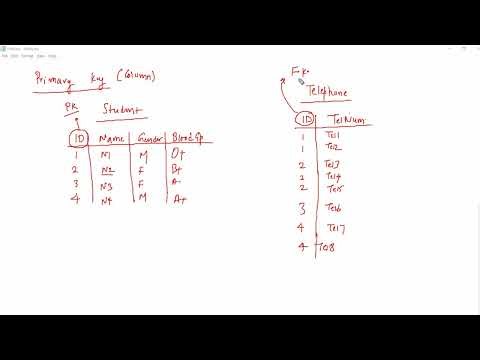 Primary Key (Column)
PK
Student
ID Name Gender BloodGp
1 N1 M O+
2 N2 F B+
3 N3 F A-
4 N4 M A+
F.K.
Telephone
ID TelNum
1 Tel1
1 Tel2
2 Tel3
2 Tel4
2 Tel5
3 Tel6
4 Tel7
4 TO8